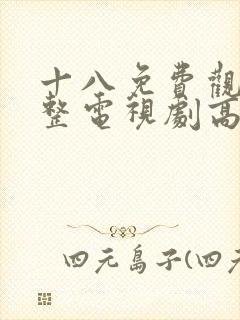 十八免費觀
整電視劇高
四元島子(四元